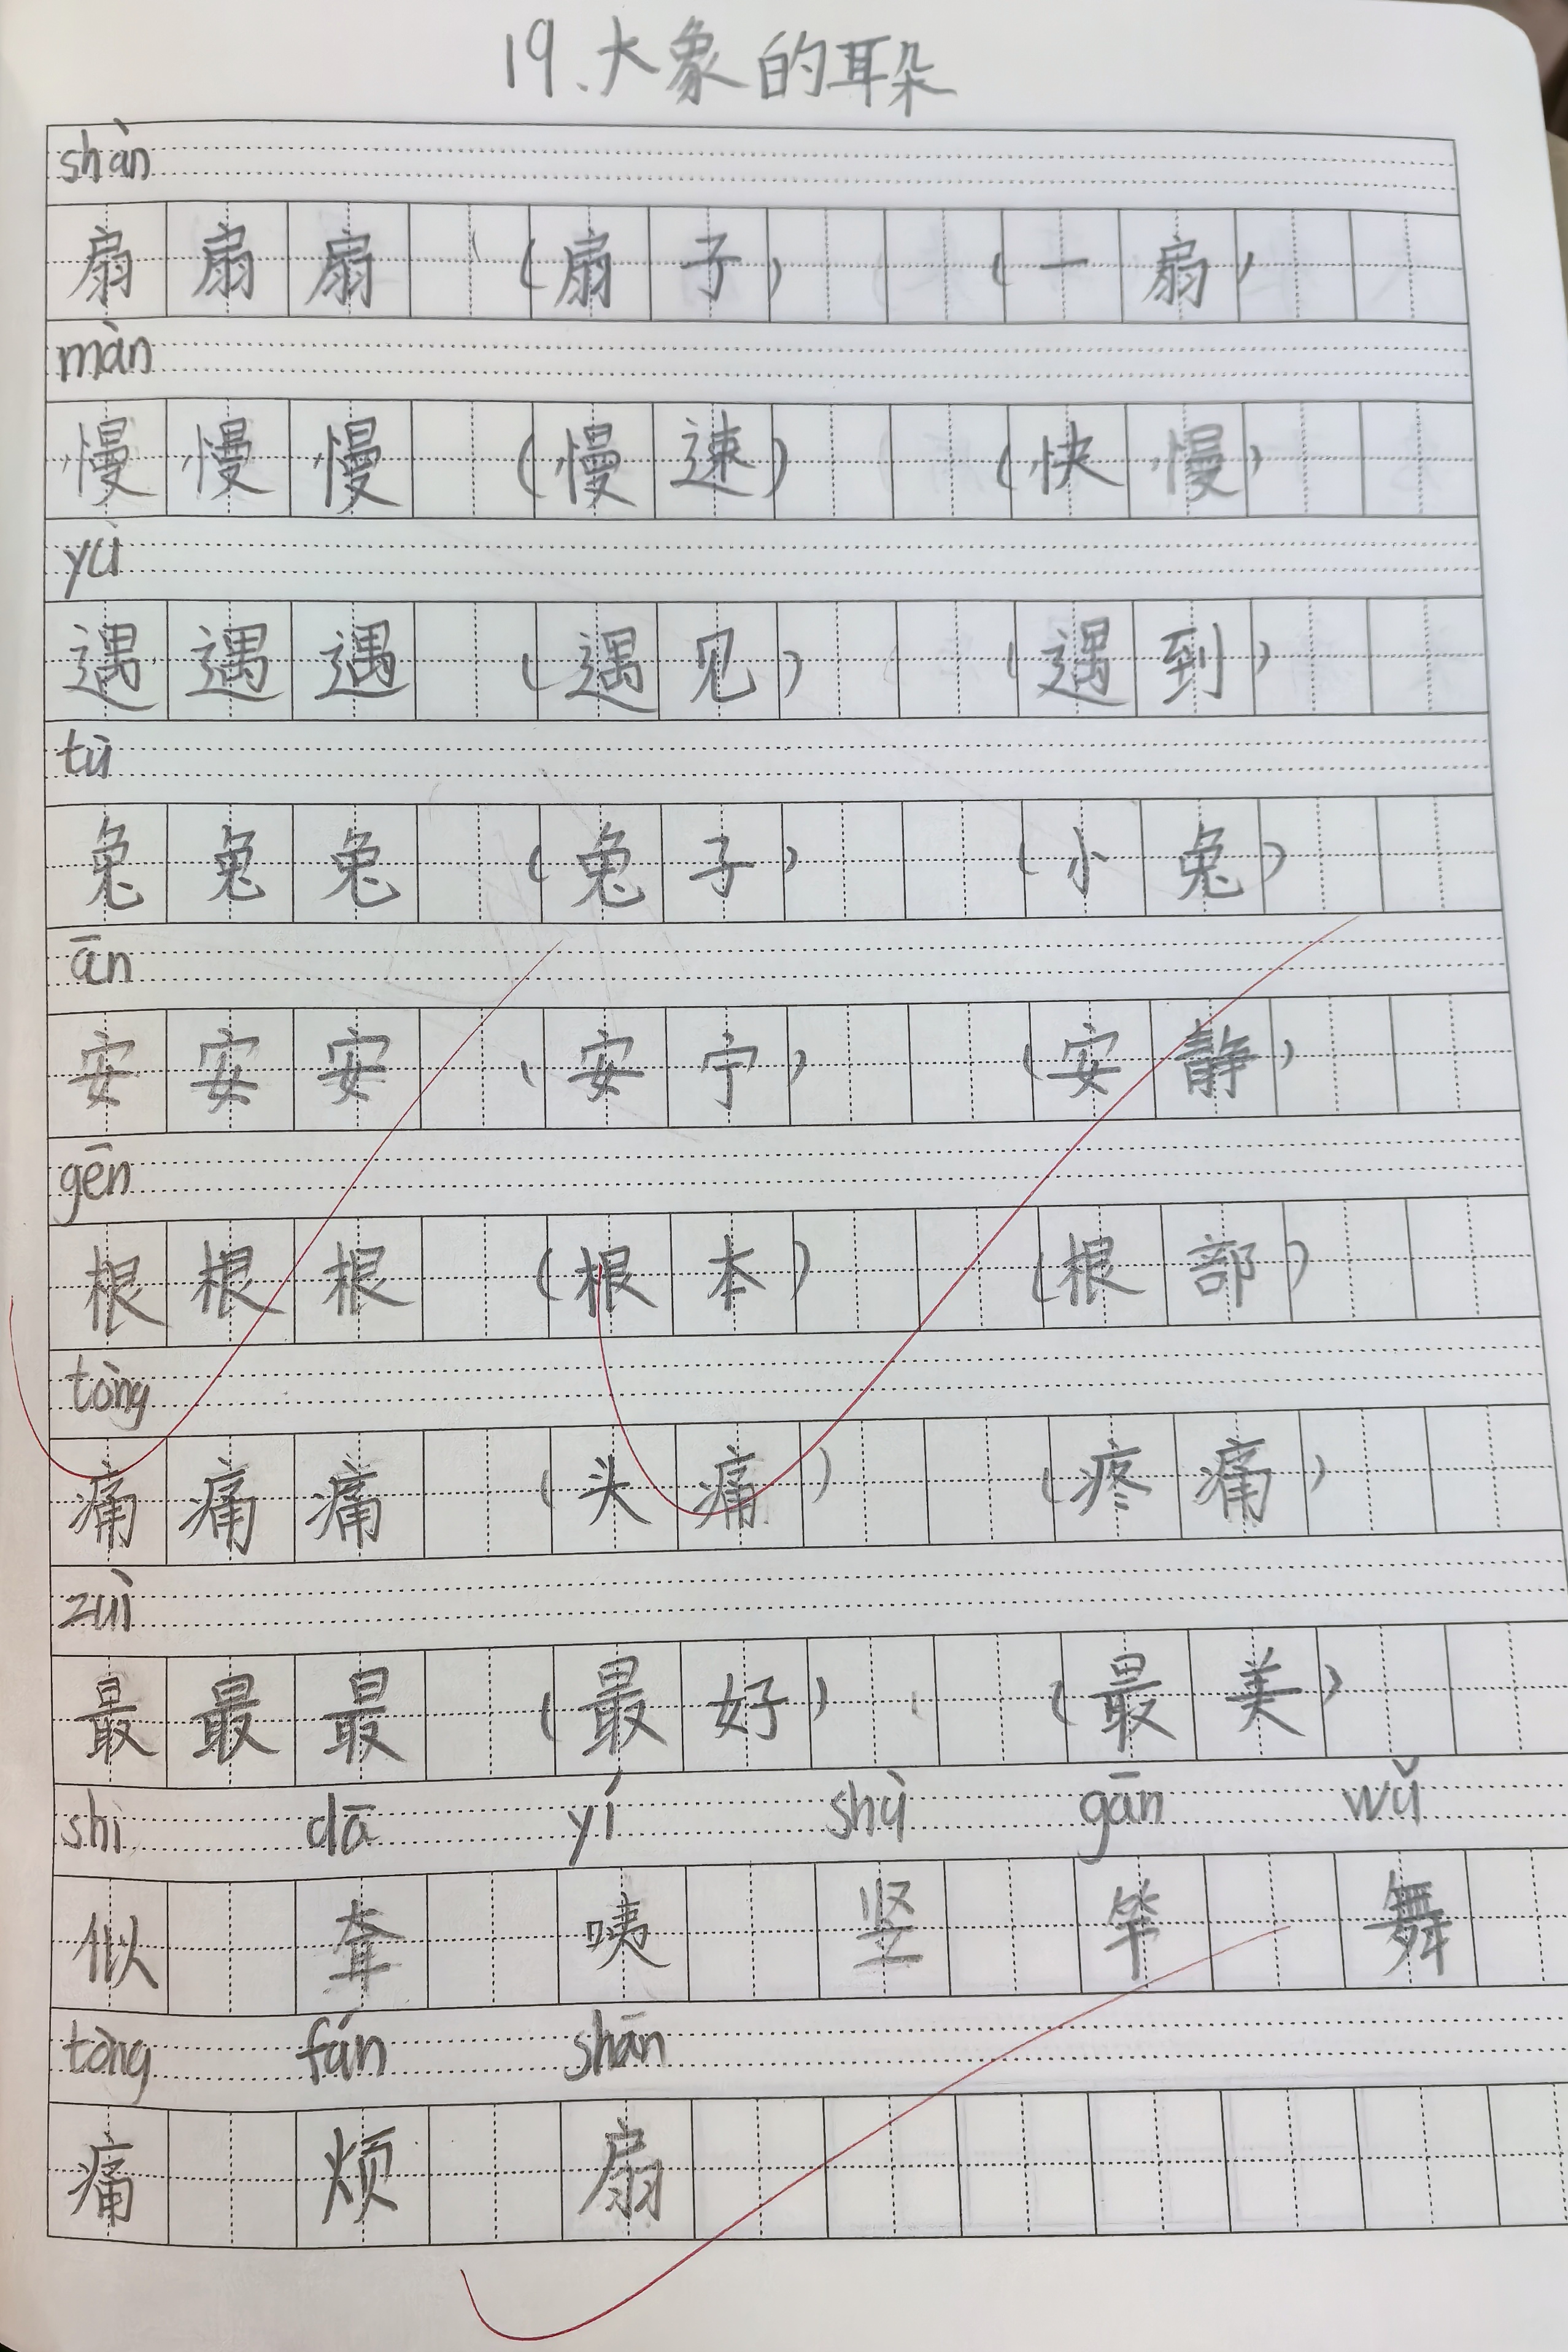 19、大象的耳朵
shàn
扇 扇 扇 (扇子) (一扇)
màn
慢 慢 慢 (慢速) (快慢)
yù
遇 遇 遇 (遇见) (遇到)
tù
兔 兔 兔 (兔子) (小兔)
ān
安 安 安 (安宁) (安静)
gēn
根 根 根 (根本) (根部)
tòng
痛 痛 痛 (头痛) (疼痛)
zuì
最 最 最 (最好) (最美)
shì dā yí shù gān wǔ
似 耷 咦 竖 竿 舞
tòng fán shān
痛 烦 扇